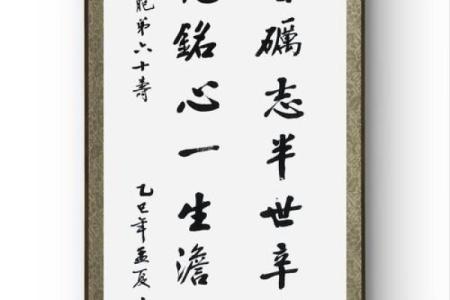 礪志半世辛
銘心一生澹
胞弟六十壽
乙巳年孟夏